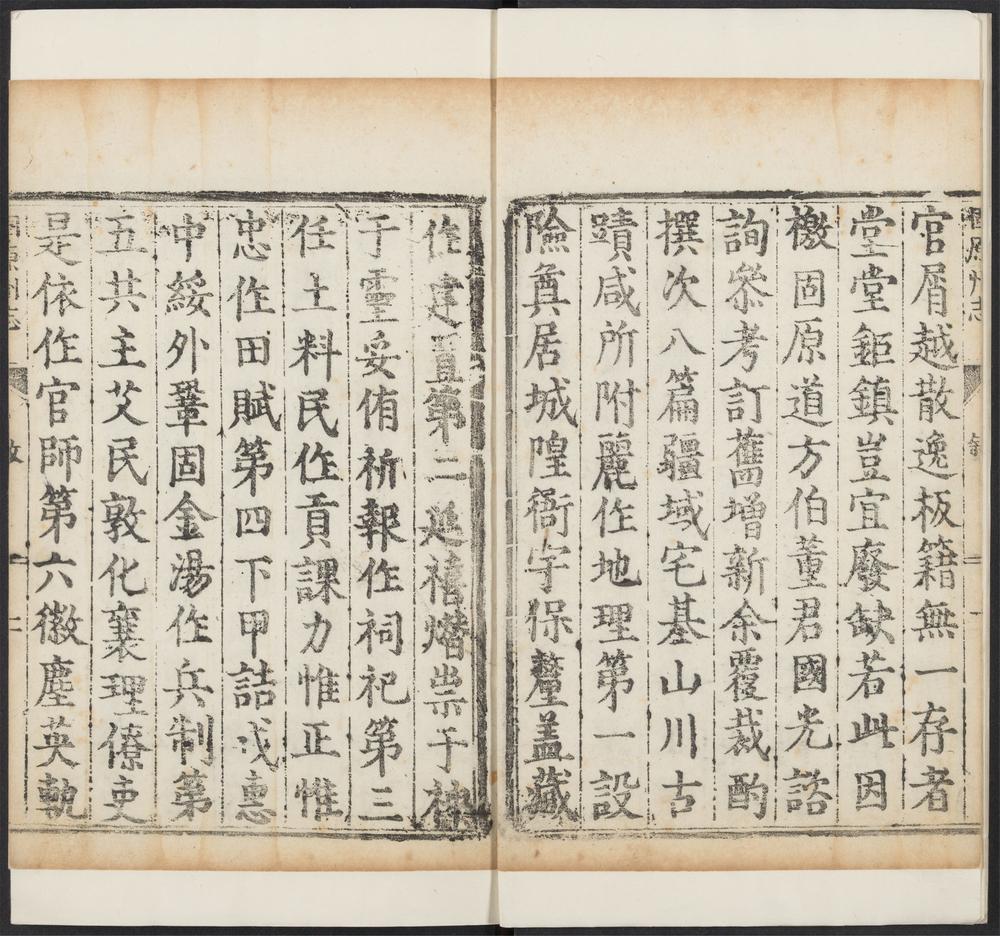 固原州志
官屑越散逸板籍無一存者
堂堂鉅鎮豈宜廢缺若此因
檄固原道方伯董君國光諮
詢叅考訂舊增新余覆裁酌
撰次八篇疆域宅基山川古
蹟咸所附麗作地理第一設
險奠居城隍衙宇保釐蓋藏
作建置第二延禧熸祟于神
于靈妥侑祈報作祠祀第三
任土料民作貢課力惟正惟
忠作田賦第四下甲詰戎悳
中綏外鞏固金湯作兵制第
五共主艾民敦化襄理僚吏
是依作官師第六徽塵英軌
固原州志